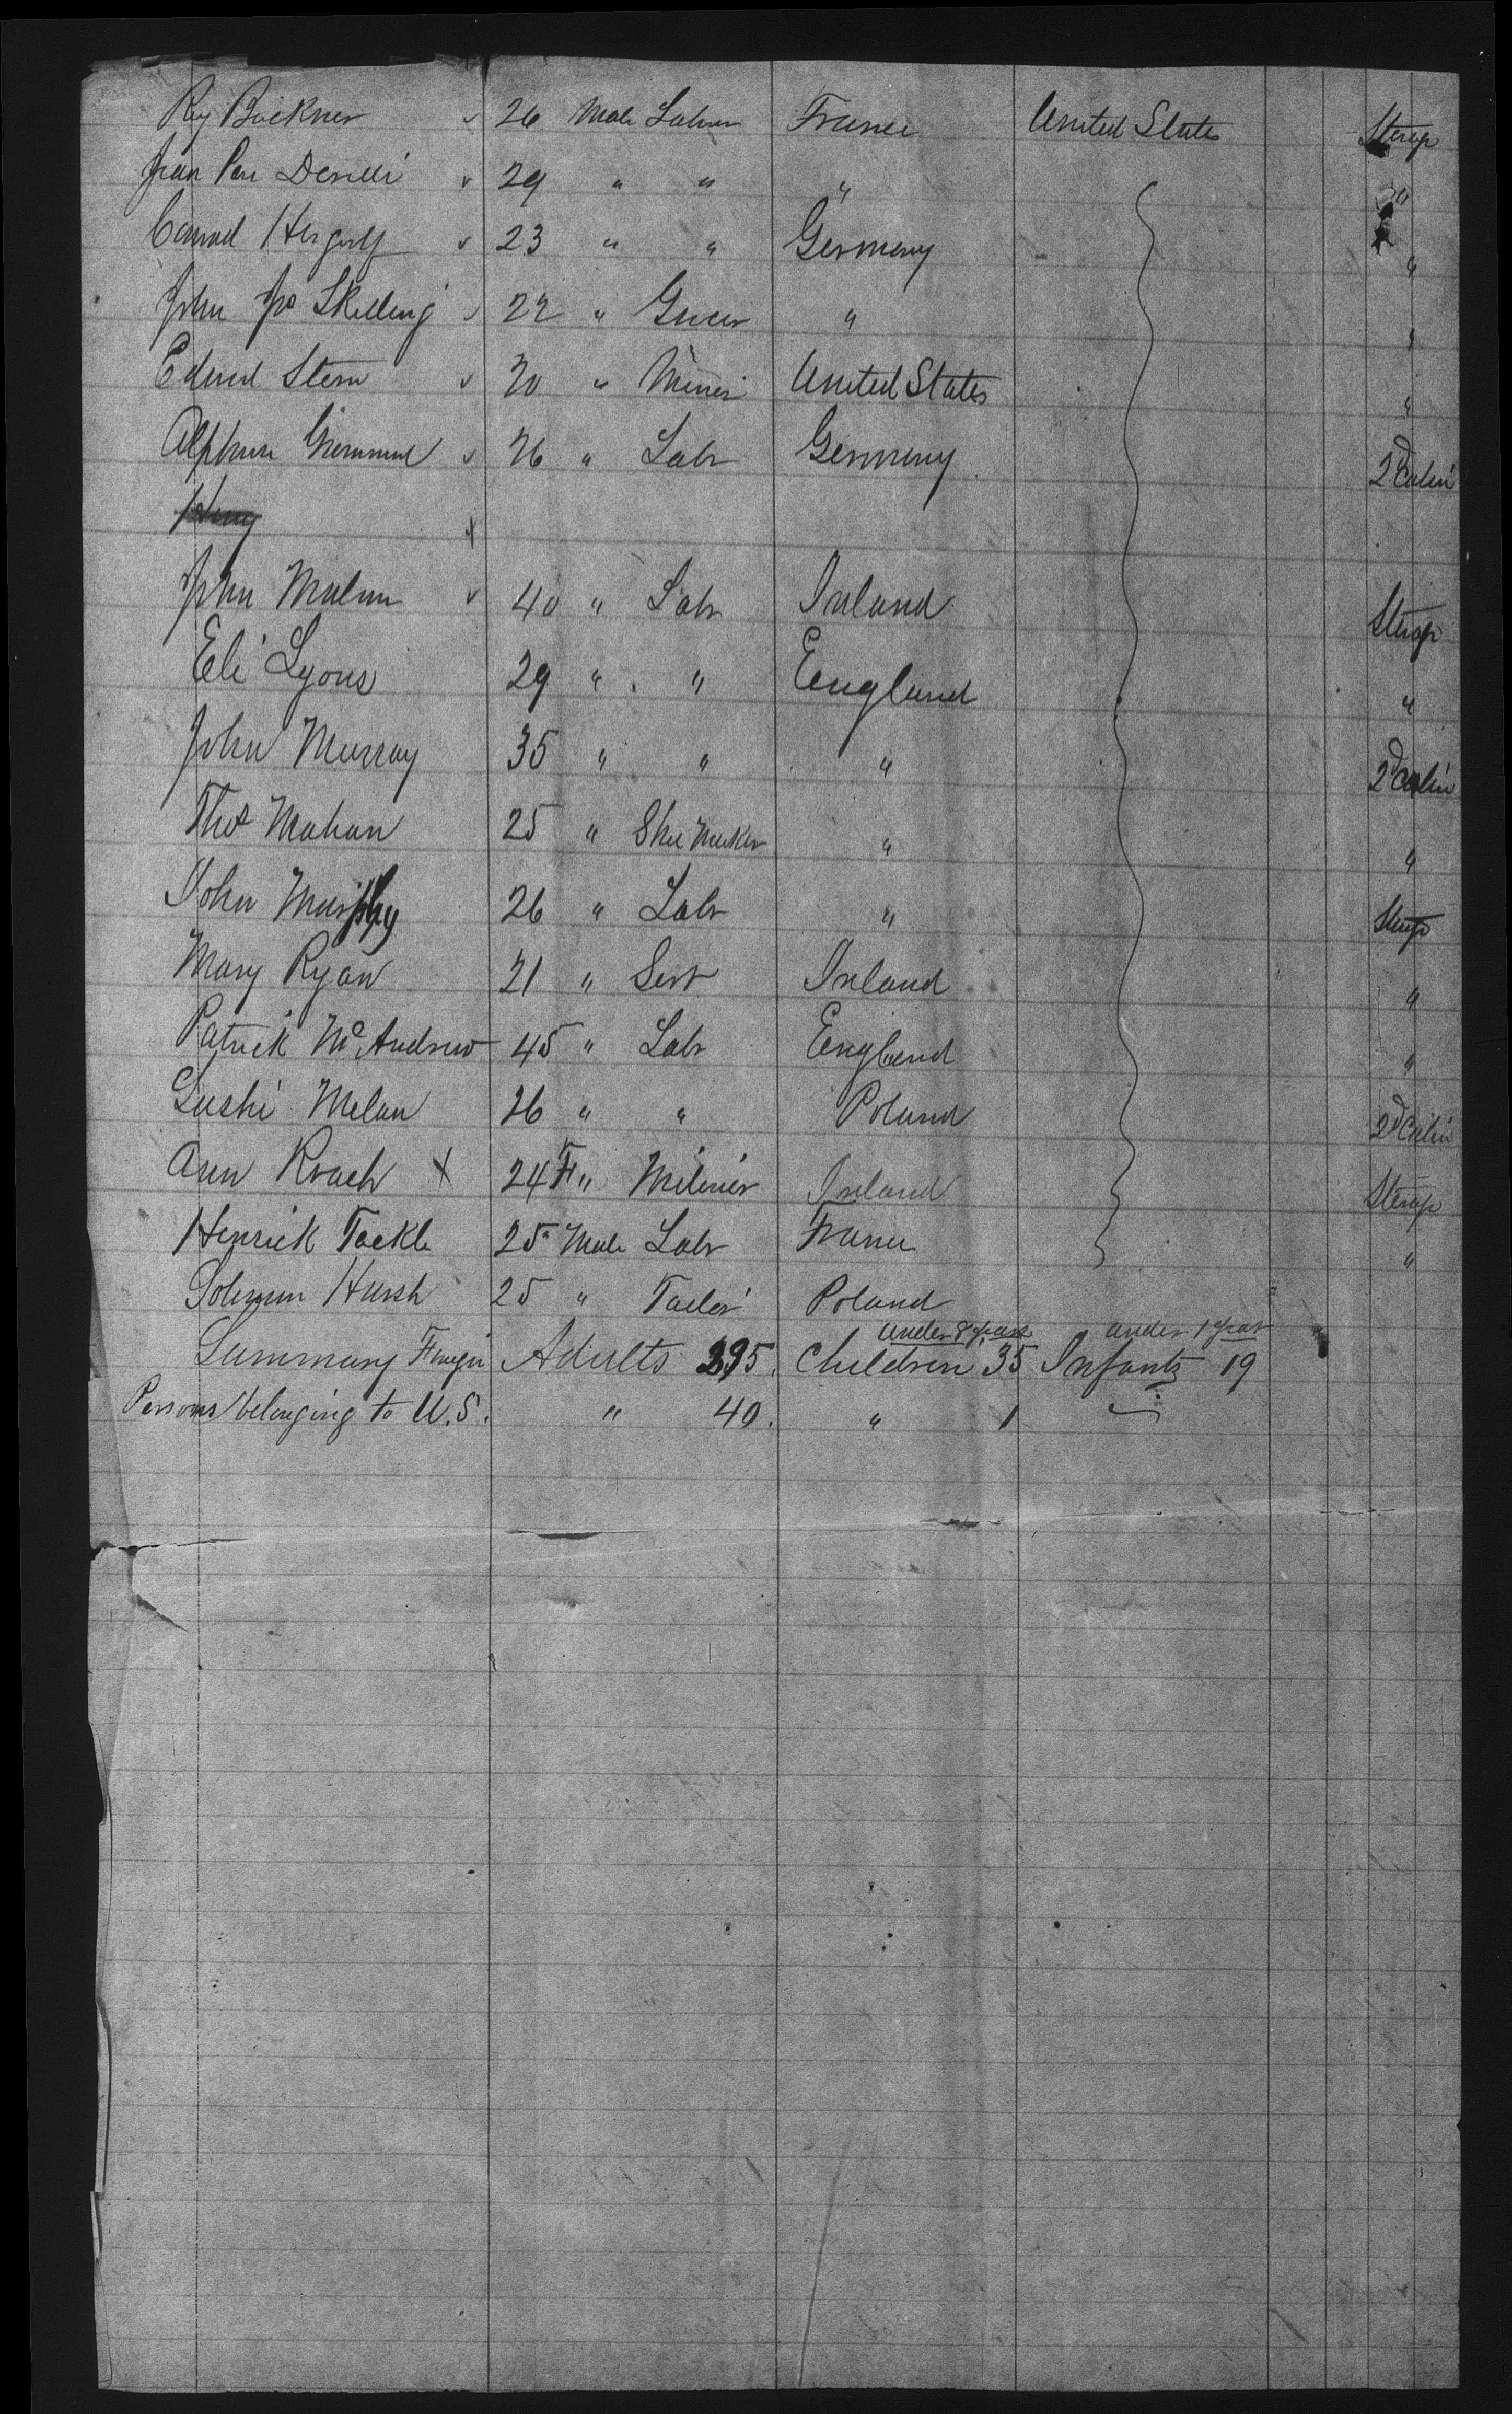 Roy Buckner 26 Male Labrer France United States Sterge
Jean 29 " " " "
Conrad 23 " " Germany "
John Jos Skelling 22 " Grocer " "
Edund Stern 20 " Miner United States "
Alphonse 26 " Labr Germany 2d Cabin
Henry
John Malone 40 " Labr Ireland Sterge
Eli Lyons 29 " " England "
John Murray 35 " " " 2d Cabin
Thos Mahan 25 " Shoe Maker " "
John Murphy 26 " Labr " Sterge
Mary Ryan 21 " Servt Ireland "
Patrick McAndrew 45 " Labr England "
Gushi Melan 26 " " Poland 2d Cabin
Ann Roach X 24 F " Miliner Ireland Sterge
Henrick Tackle 25 Male Labr France "
Solomon Hursh 25 " Tailor Poland
under 8 years under 1 year
Summary Foreign Adults 395. Children 35 Infants 19
Persons belonging to U.S. " 40. " 1